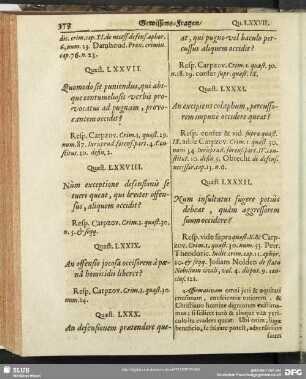 378
Gewissens-Fragen/
Qu. LXXVII.
dic. crim. cap. 11. de necess. defens. aphor.
6. num. 13. Damhoud. Prax. crimin.
cap. 76. n. 23.
Quæst. LXXVII.
Quomodo sit puniendus, qui abs-
que contumeliosis verbis pro-
vocatus ad pugnam, provo-
cantem occidit?
Resp. Carpzov. Crim. 1. quæst. 29.
num. 87. Jurisprud. forens. part. 4. Con-
stitut. 10. defin. 2.
Quæst. LXXVIII.
Num exceptione defensionis se
tueri queat, qui leviter offen-
sus, aliquem occidit?
Resp. Carpzov. Crim. 1. quæst. 30.
n. 5. & seqq.
Quæst. LXXIX.
An offensio jocosa occisorem à pœ-
nâ homicidii liberet?
Resp. Carpzov. Crim. 1. quæst. 30.
num. 24.
Quæst. LXXX.
An defensionem prætendere que-
at, qui pugno vel baculo per-
cussus aliquem occidit?
Resp. Carpzov. Crim. 1. quæst. 30.
n. 18. 19. confer supr. quæst. IX.
Quæst. LXXXI.
An excipiens colaphum, percusso-
rem impune occidere queat?
Resp. confer & vid. supra quæst.
IX. add. Carpzov. Crim. 1. quæst. 30.
num. 34. Jurisprud. forens. part. IV. Con-
stitut. 10. defin. 5. Obrecht de defens.
necessar. cap. 13. n. 6.
Quæst. LXXXII.
Num insultatus fugere potiùs
debeat, quàm aggressorem
suum occidere?
Resp. vide supra quæst. X. & Carp-
zov. Crim. 1. quæst. 30. num. 53. Petr.
Theodoric. Judic. crim. cap. 11. aphor.
20. & seqq. Josiam Nolden de statu
Nobilium civili, vol. 4. disput. 9. con-
clus. 121.
Affirmativam omni juri & æquitati
consonam, conscientiæ tutiorem, &
Christiano homine digniorem existima-
mus: si scilicet tutò & absque vitæ peri-
culo ista evadere queat. Ubi enim, fugæ
beneficio, se salvare potest, adversarium
suum
SLUB
Wir führen Wissen.